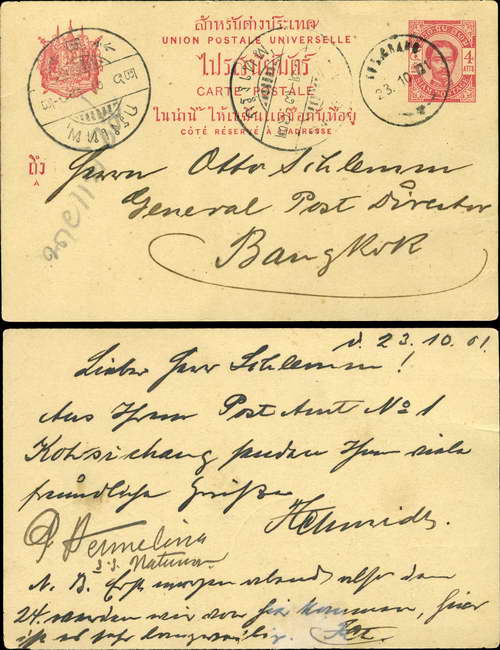 สำหรับต่างประเทศ
UNION POSTALE UNIVERSELLE
ไปรสนียบัตร
CARTE POSTALE
ในน่านี้ ให้เขียนแต่ชื่อกับที่อยู่
CÔTÉ RÉSERVÉ A L'ADRESSE
4
ATTS
23.10.01
ถึง
A
Herrn Otto Schlemm
General Post Director
Bangkok
d. 23.10.01.
Lieber Herr Schlemm!
Aus Ihrem Post Amt No 1
Kohsichang senden Ihnen viele
freundliche Grüße
HSchmidt.
N. B. Erst morgen abend also den
24. werden wir von hier kommen, hier
ist es sehr langweilig.